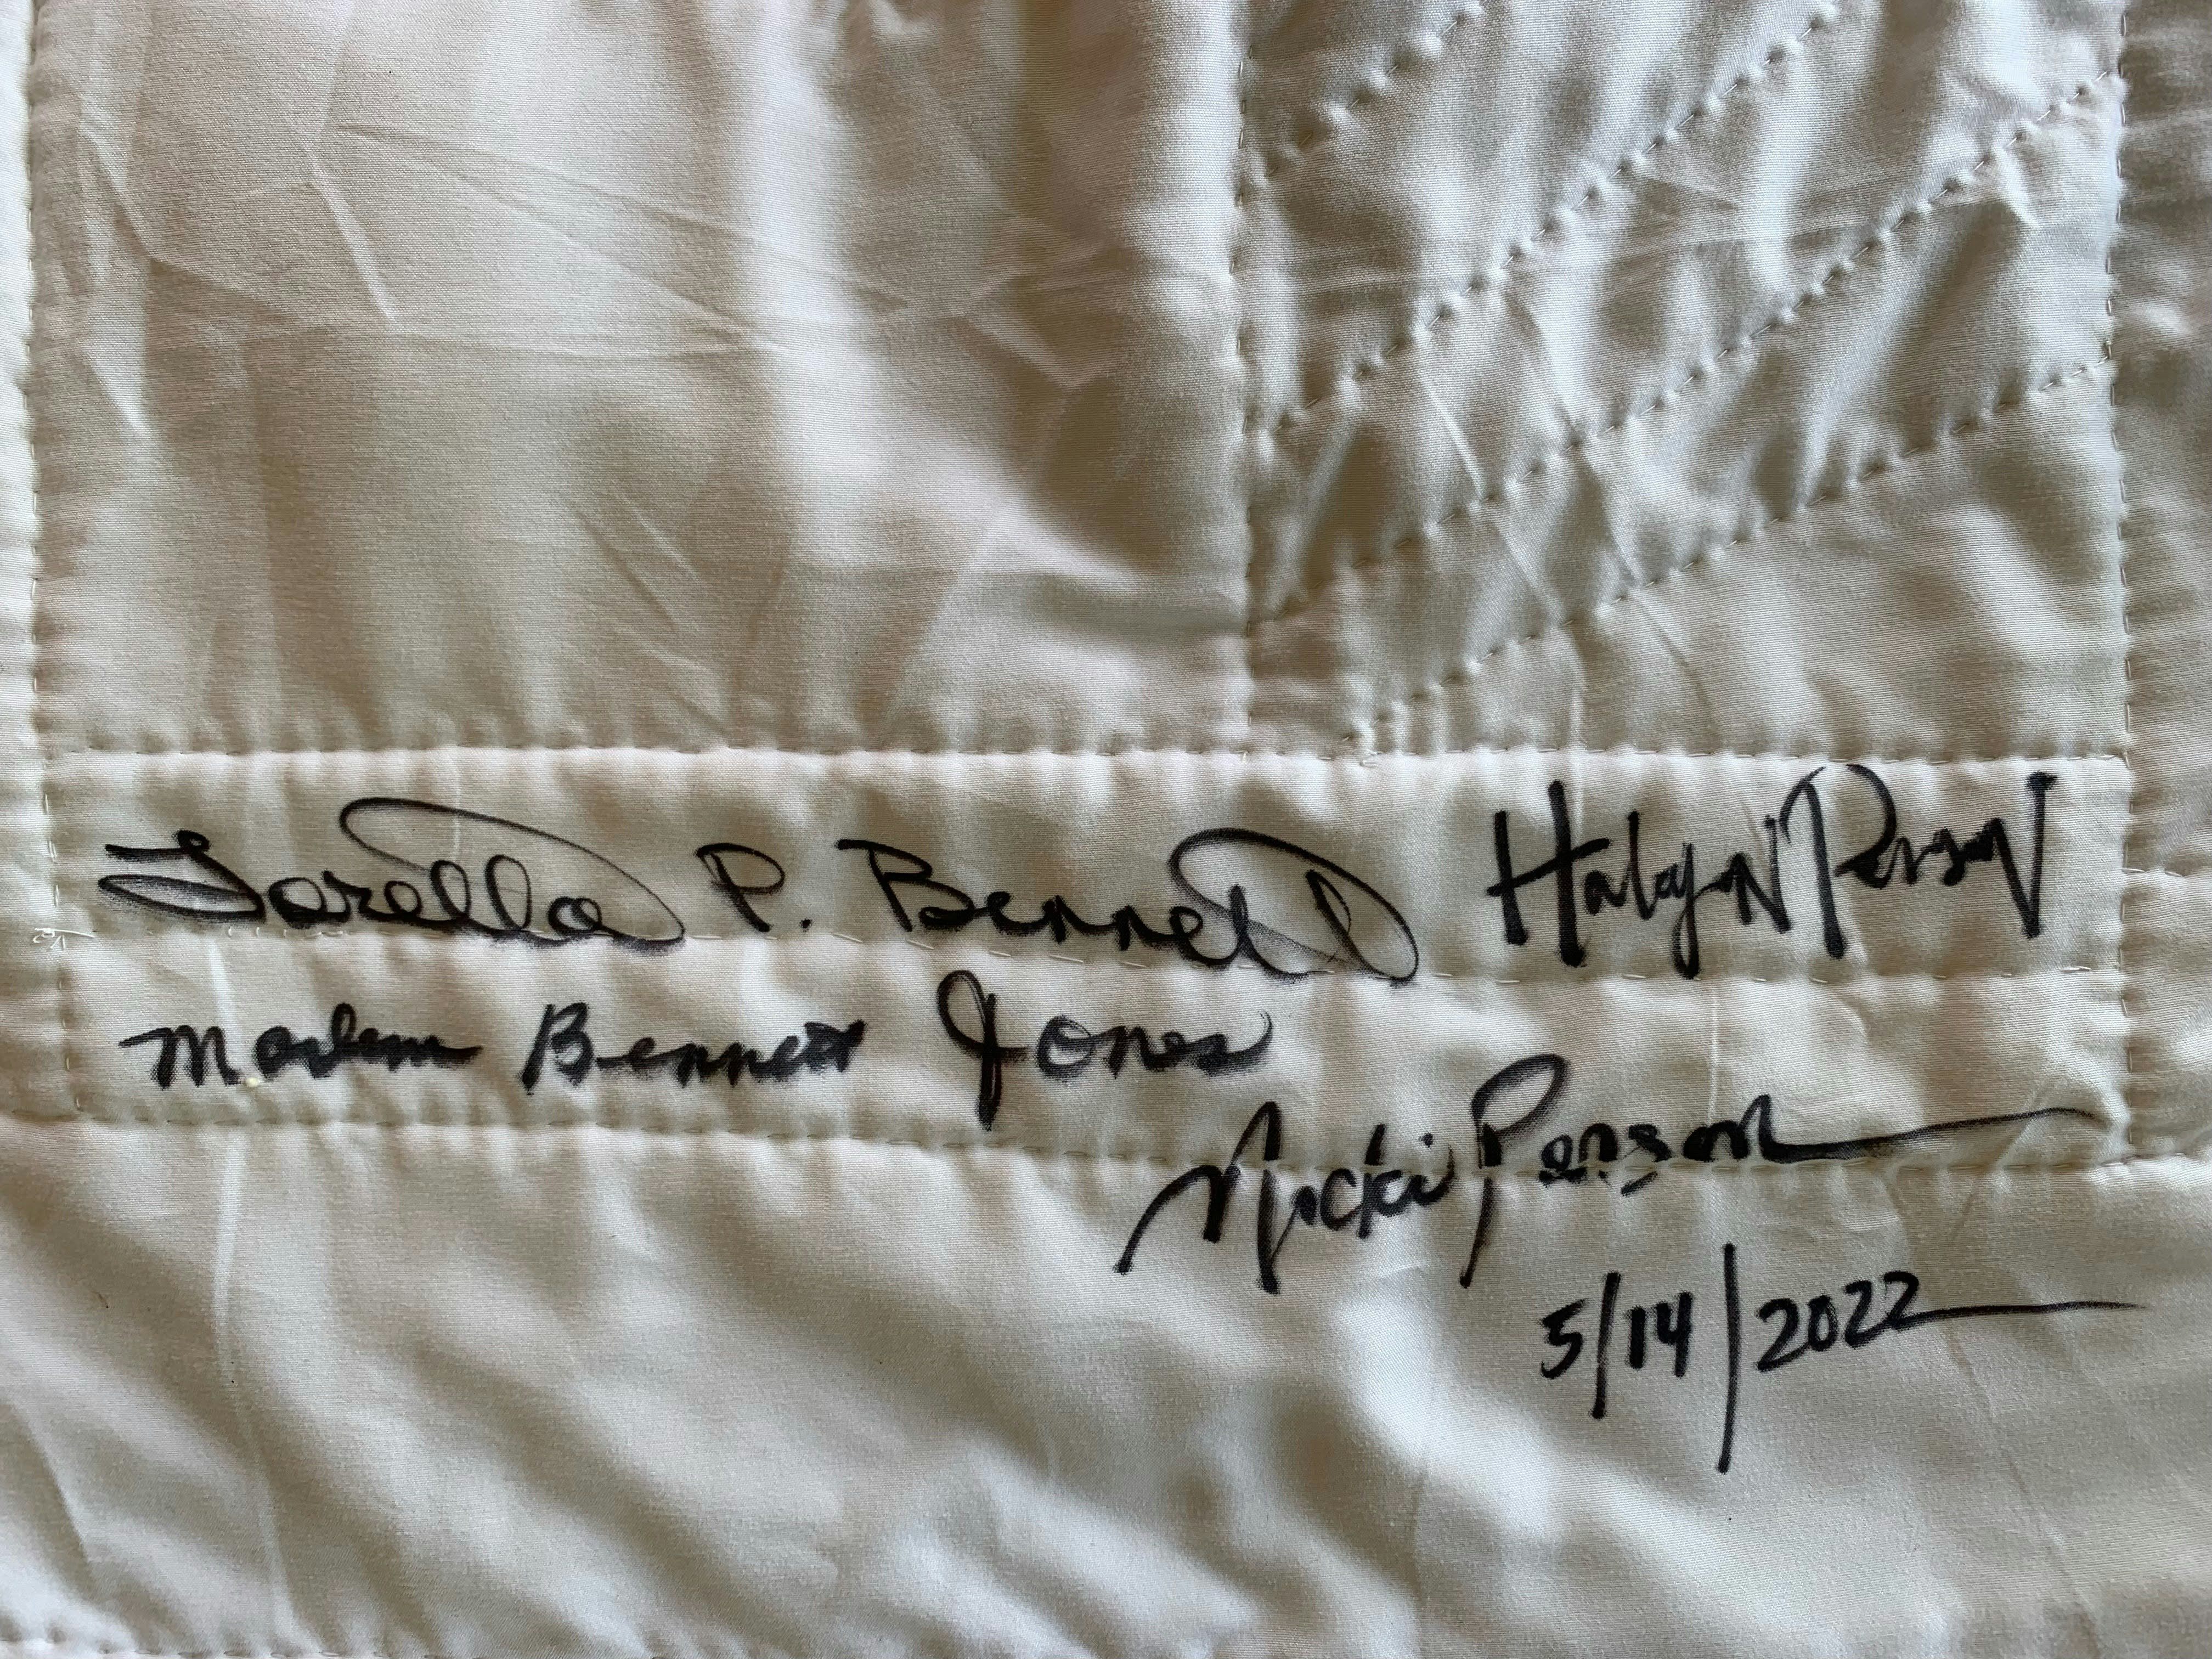 Lorella P. Bennett Halcyon Person
Marlem Bennett Jones
Nicki Person
5/14/2022